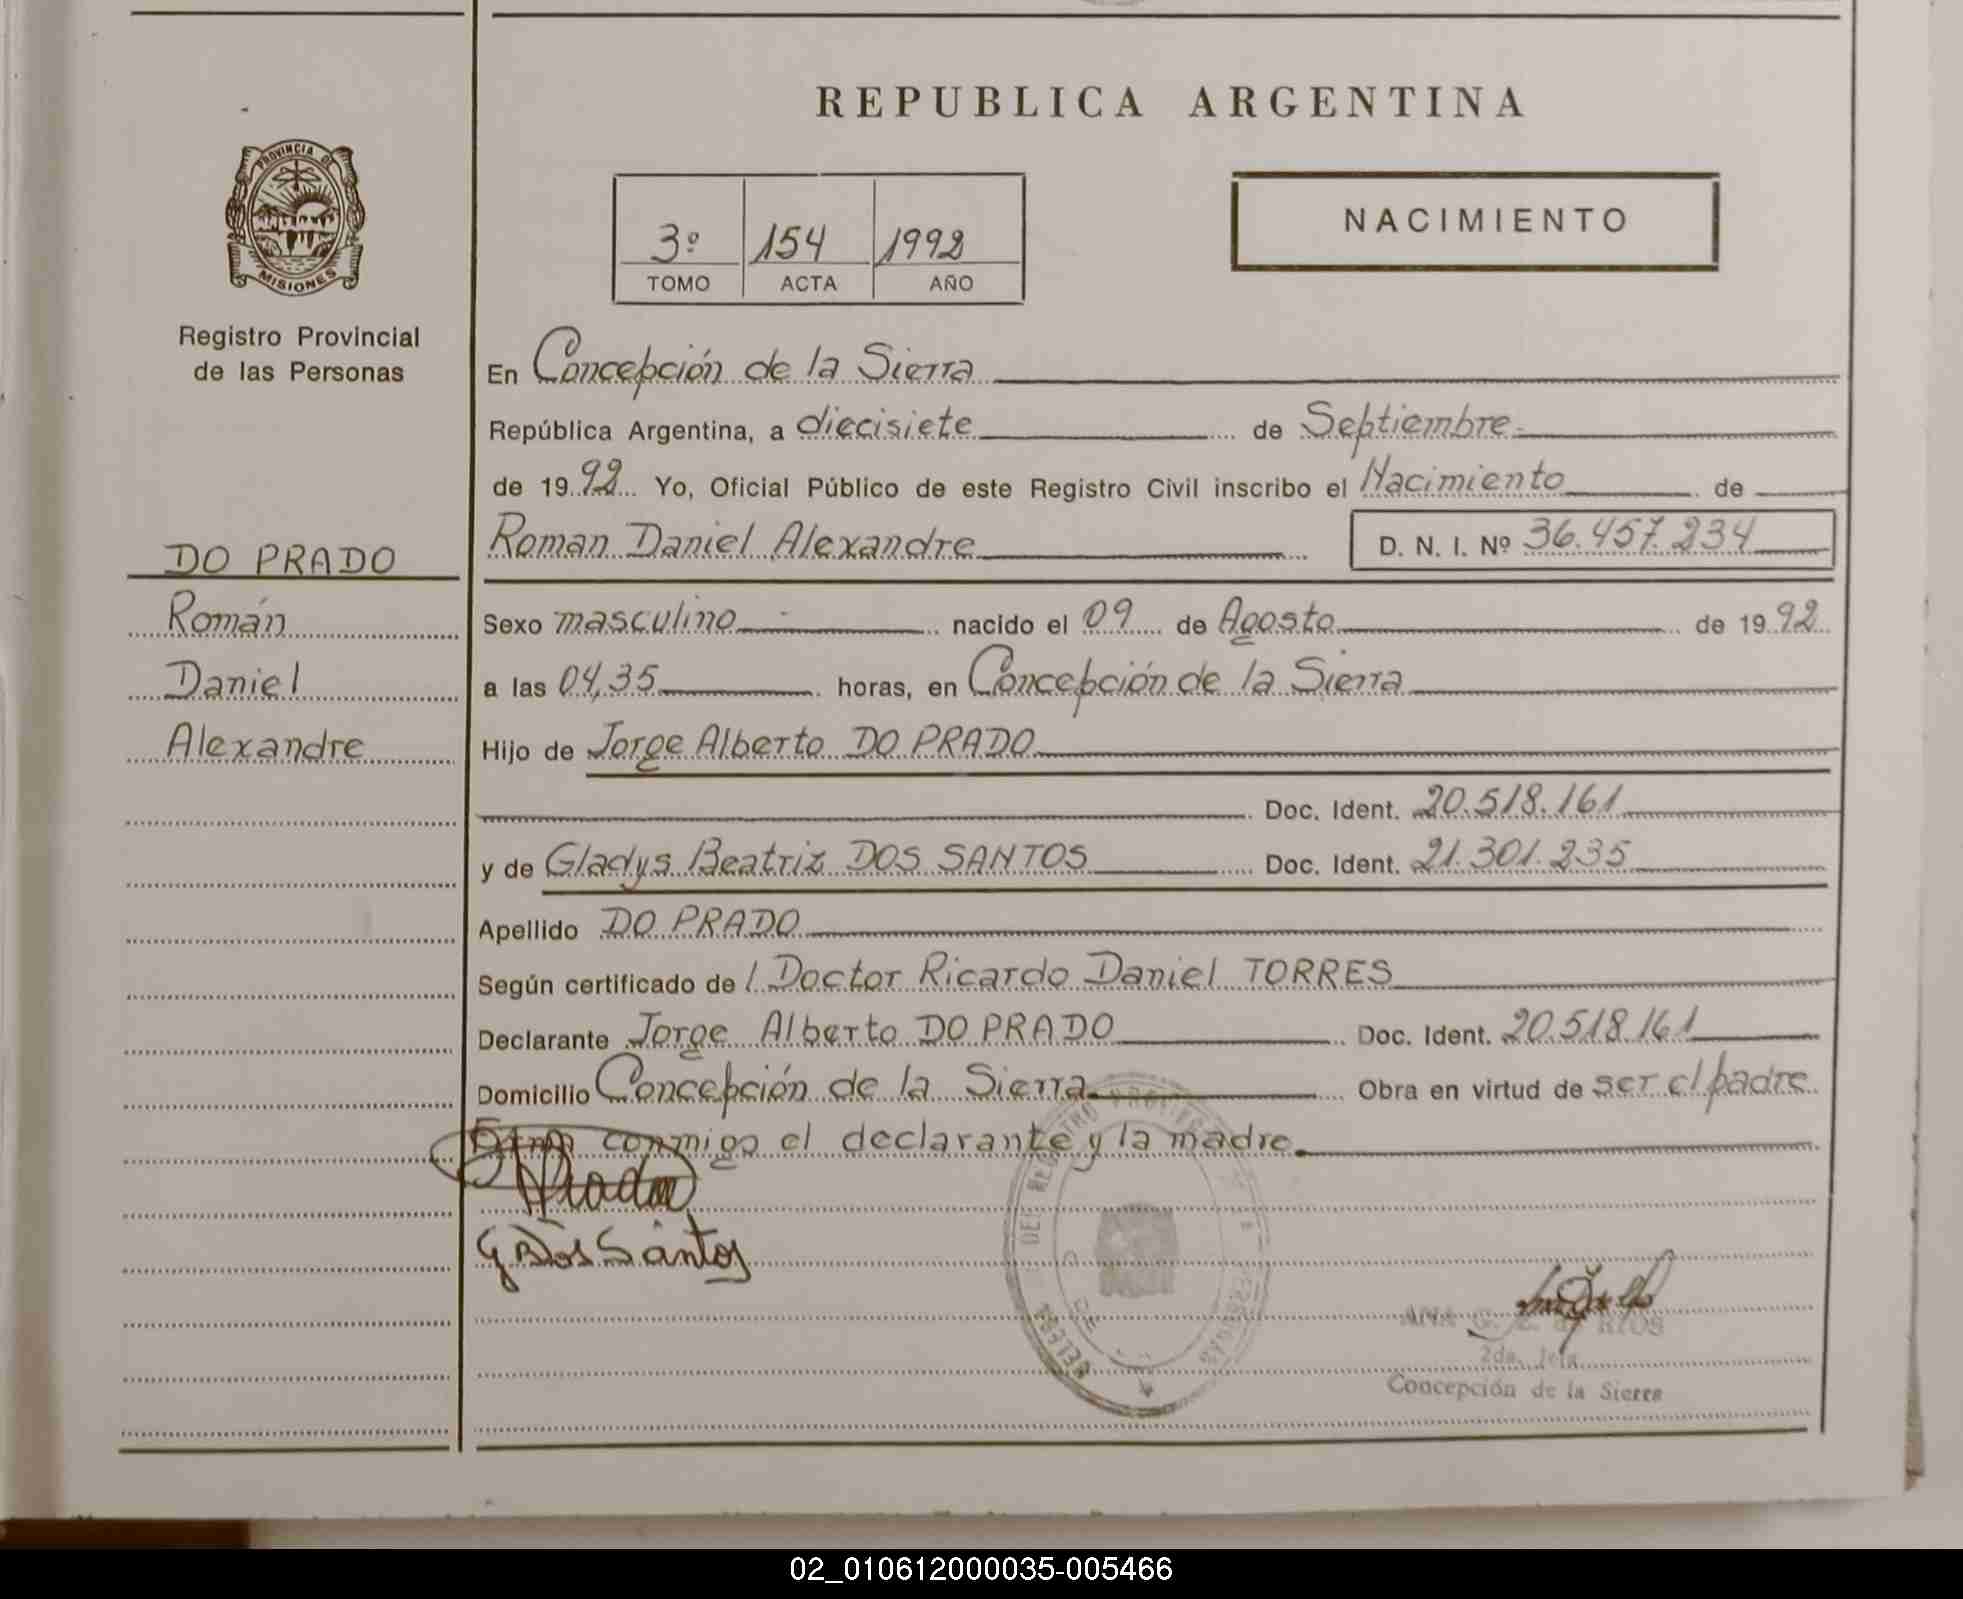 REPUBLICA ARGENTINA
PROVINCIA DE
MISIONES
Registro Provincial
de las Personas
3º 154 1992
TOMO ACTA AÑO
NACIMIENTO
En Concepción de la Sierra
República Argentina, a diecisiete de Septiembre
de 1992 Yo, Oficial Público de este Registro Civil inscribo el Nacimiento de
Roman Daniel Alexandre D. N. I. Nº 36.457.234
DO PRADO
Román
Daniel
Alexandre
Sexo masculino nacido el 09 de Agosto de 1992
a las 04,35 horas, en Concepción de la Sierra
Hijo de Jorge Alberto DO PRADO
Doc. Ident. 20.518.161
y de Gladys Beatriz DOS SANTOS Doc. Ident. 21.301.235
Apellido DO PRADO
Según certificado de l Doctor Ricardo Daniel TORRES
Declarante Jorge Alberto DO PRADO Doc. Ident. 20.518.161
Domicilio Concepción de la Sierra Obra en virtud de ser el padre
conmigo el declarante y la madre.
G B Dos Santos
DEL REGISTRO
ANA G. RIOS
2da. Jefa
Concepción de la Sierra
02_010612000035-005466